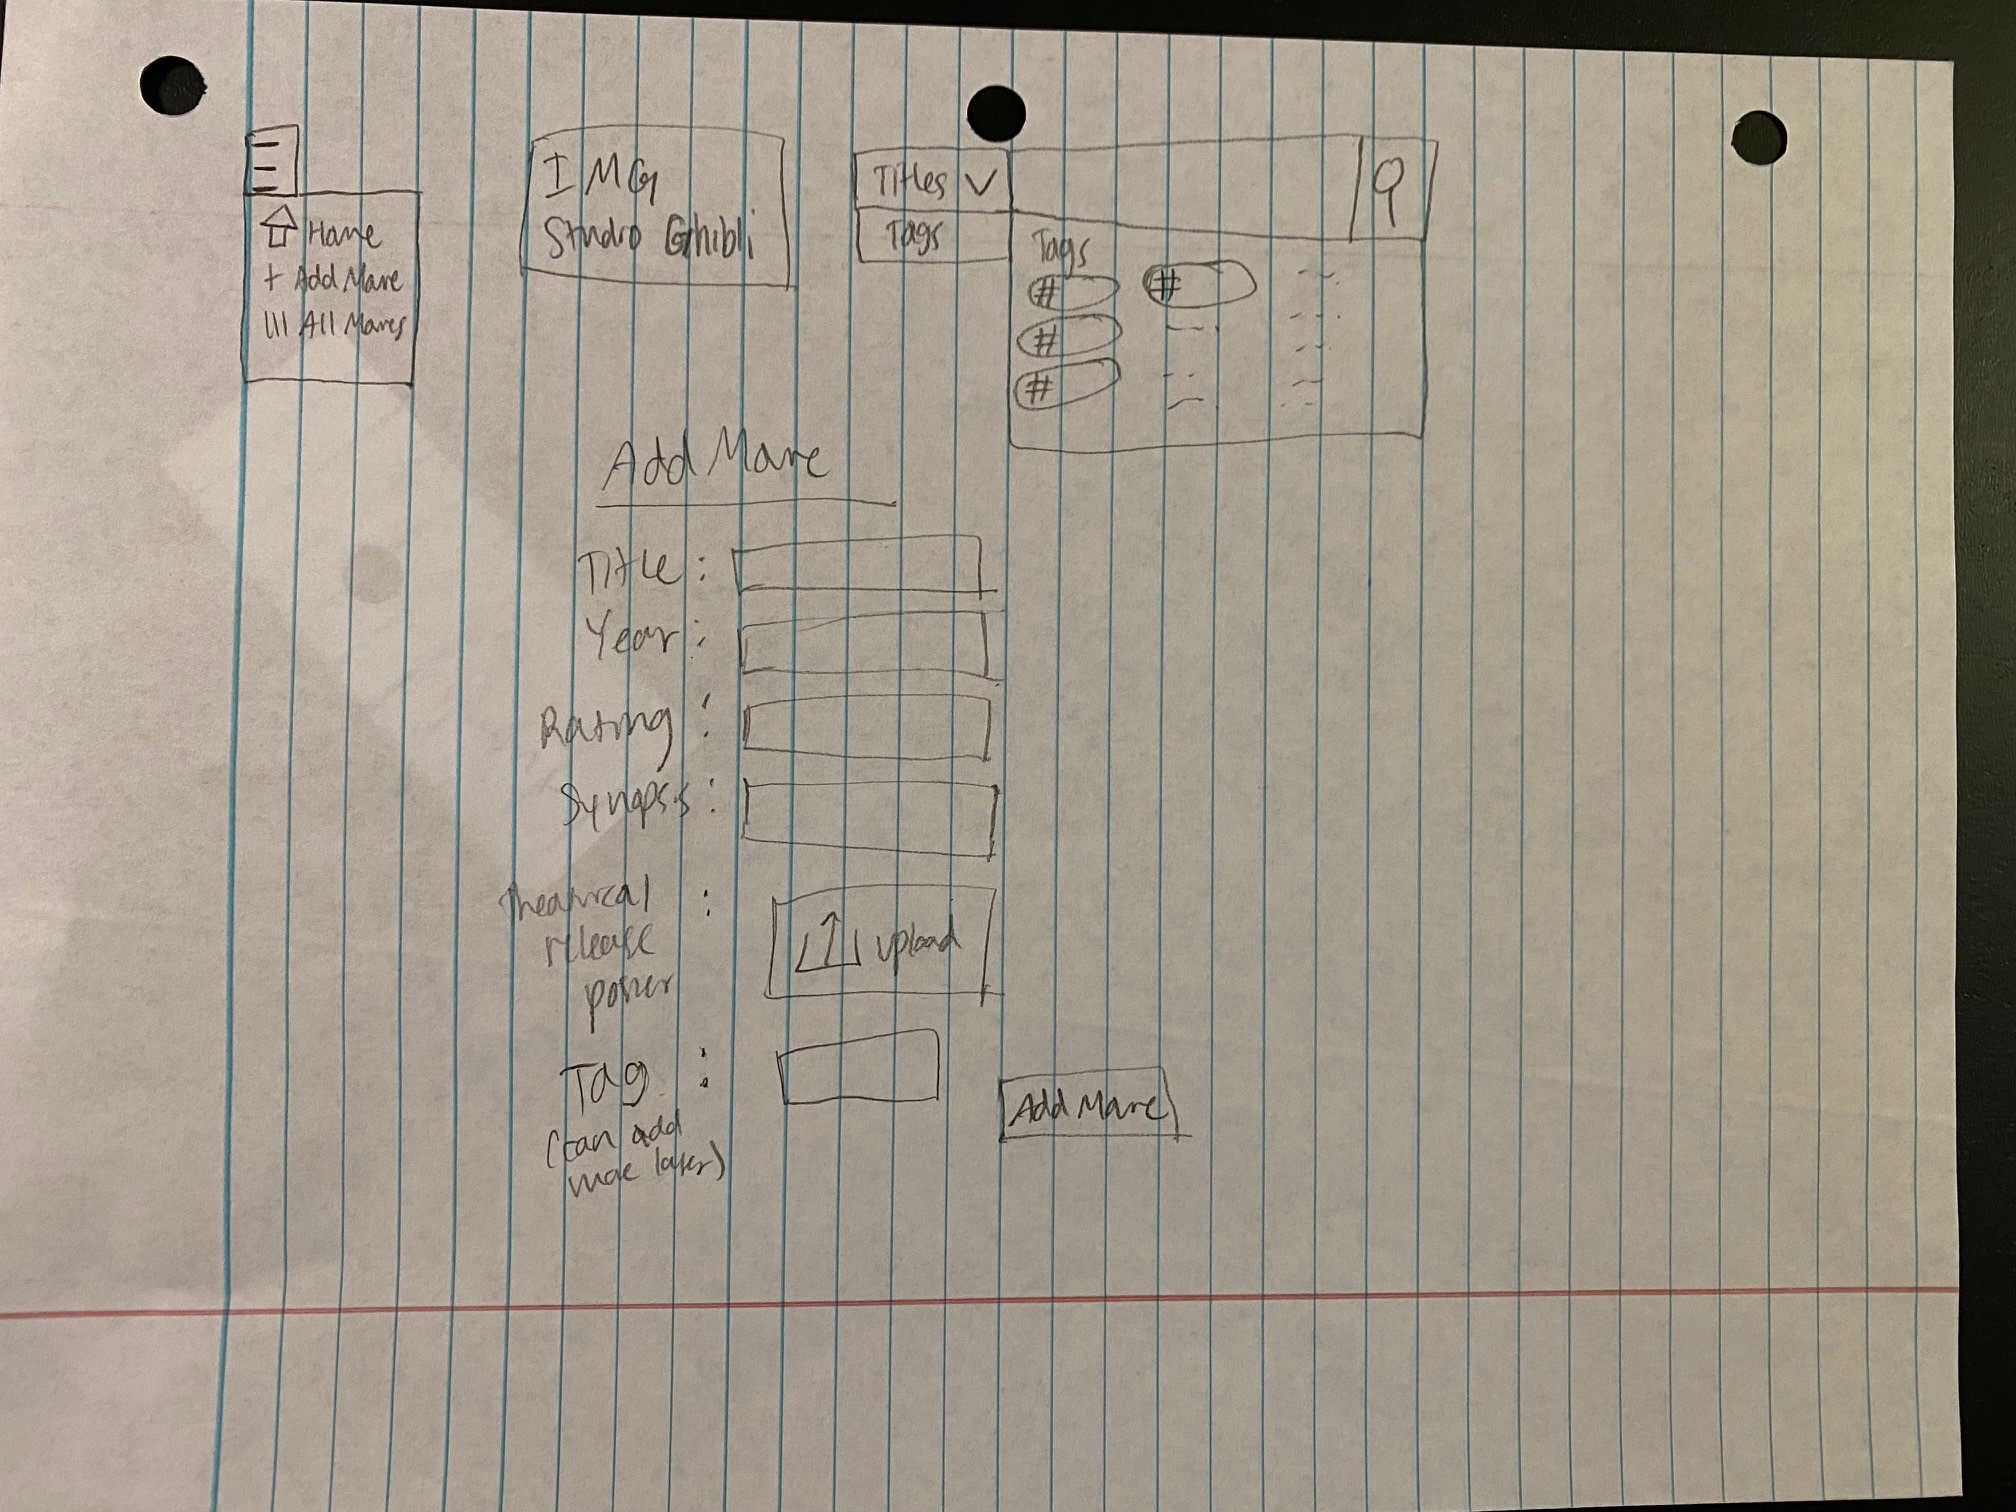 Home
+ Add Movie
All Movies
IMG
Studio Ghibli
Titles
Tags
Tags
#
#
#
#
Add Movie
Title :
Year :
Rating :
Synopsis :
Theatrical :
release
poster
upload
Tag :
(can add
more later)
Add Movie